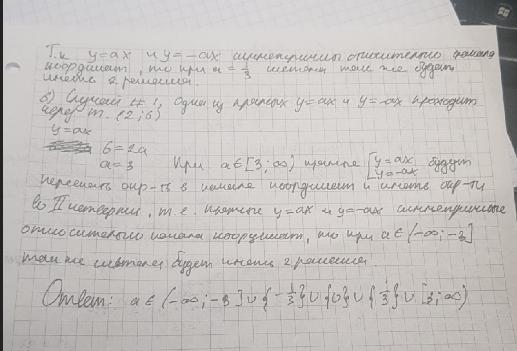 Т.к y=ax и y=-ax симметричны относительно начала
координат, то при a = 1/3 система так же будет
иметь 2 решения.
б) Случай # 1, одна из прямых y=ax и y=-ax проходит
через т. (2;6)
y=ax
6=2a
a=3 При a∈[3;∞) прямые [y=ax y=-ax будут
пересекать окр-ть в начале координат и иметь окр-ти
во II четверти, т.е. прямые y=ax и y=-ax симметричные
относительно начала координат, то при a∈(-∞;-3]
так же система будет иметь 2 решения
Ответ: a∈(-∞;-3]∪{-1/3}∪{0}∪{1/3}∪[3;∞)